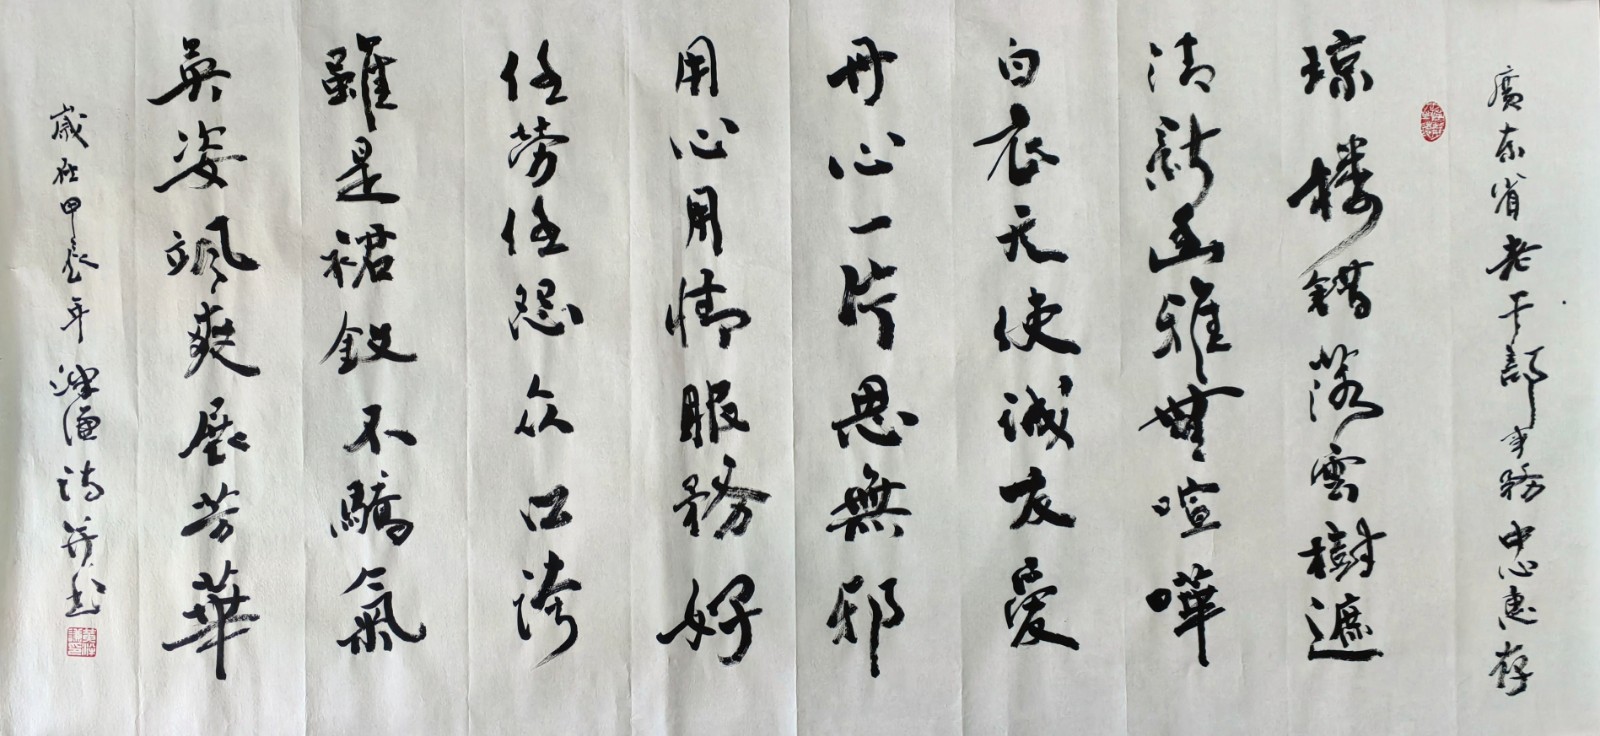 廣东省老干部事務中心惠存
琼楼錯落雲樹遮
清新幽雅無喧嘩
白衣天使誠友爱
丹心一片思無邪
用心用情服務好
任劳任怨众口誇
雖是裙釵不驕氣
英姿颯爽展芳華
歲在甲辰年 謙詩并书